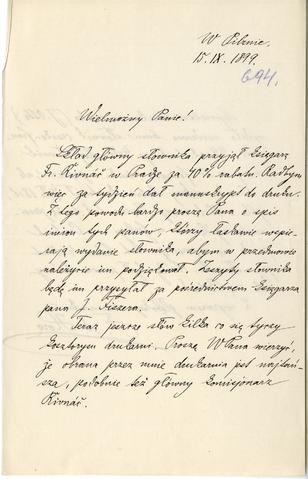 W Pilznie.
15. IX. 1899.
694.
Wielmożny Panie!
Skład główny słownika przyjął księgarz
Fr. Řivnáč w Pradze za 40% rabatu. Radbym
więc za tydzień dał manuskrypt do druku.
Z tego powodu bardzo proszę Pana o spis
imion tych panów, którzy łaskawie wspie-
rają wydanie słownika, abym w przedmowie
należycie im podziękował. Zeszyty słownika
będę im przysyłał za pośrednictwem księgarza
pana J. Fiszera.
Teraz jeszcze słów kilka co się tyczy
kosztorysu drukarni. Proszę WPana wierzyć,
że obrana przez mnie drukarnia jest najtań-
sza, podobnie też główny komisjonarz
Řivnáč.